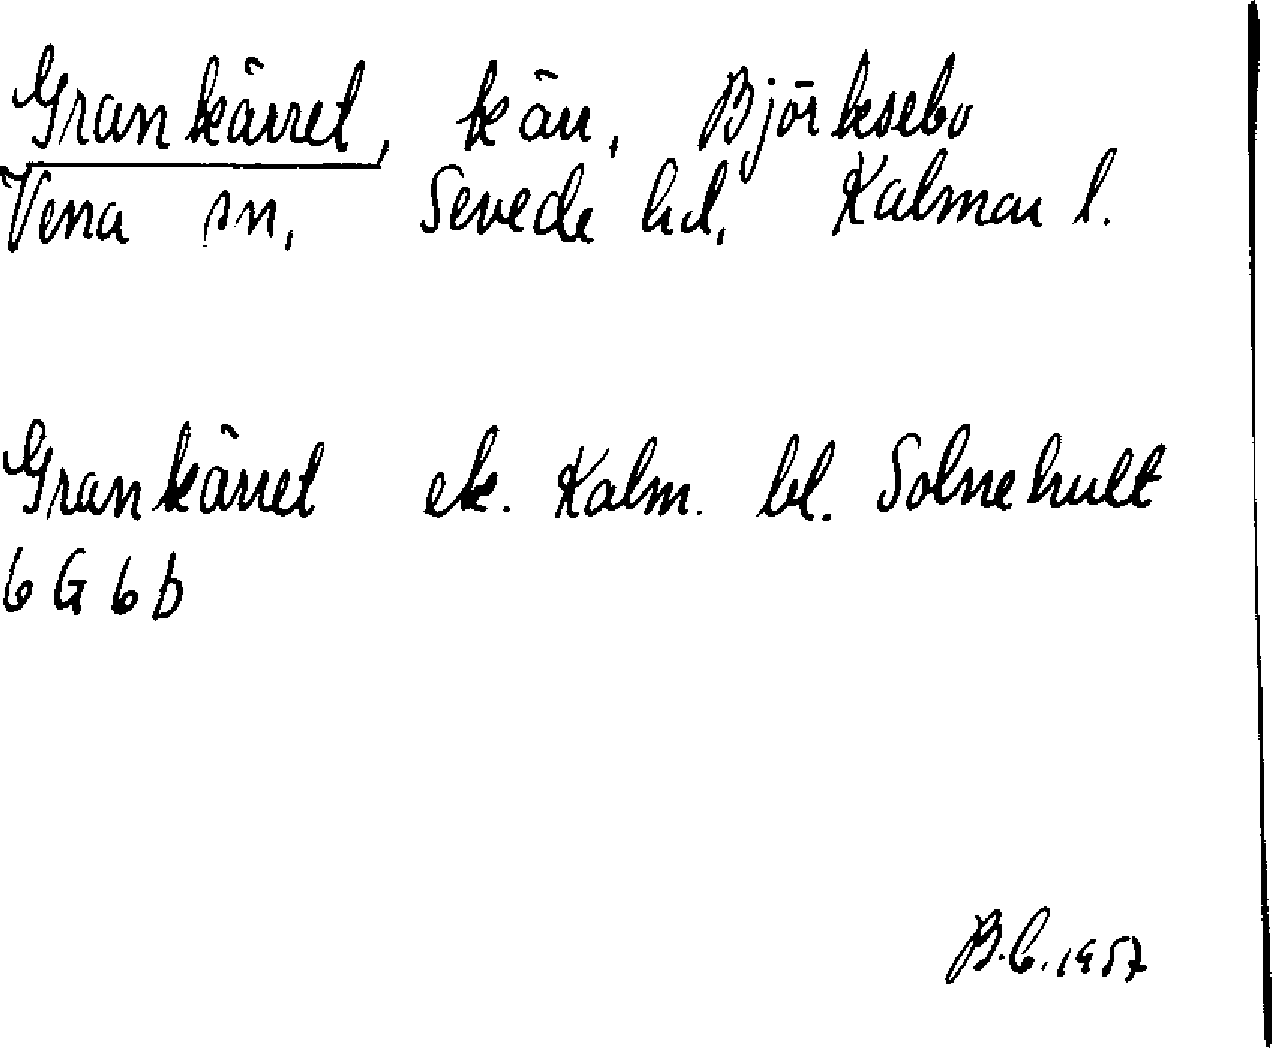 Grankärret, kärr, Björksebo
Vena sn, Sevede hd, Kalmar l.
Grankärret ek. Kalm. bl. Solnehult
6 G 6 b
B.C. 1957